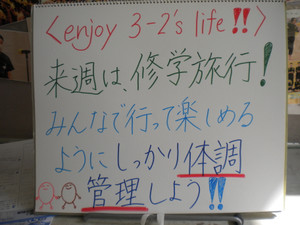 <enjoy 3-2's life!!>
来週は、修学旅行!
みんなで行って楽しめる
ようにしっかり体調
管理しよう!!